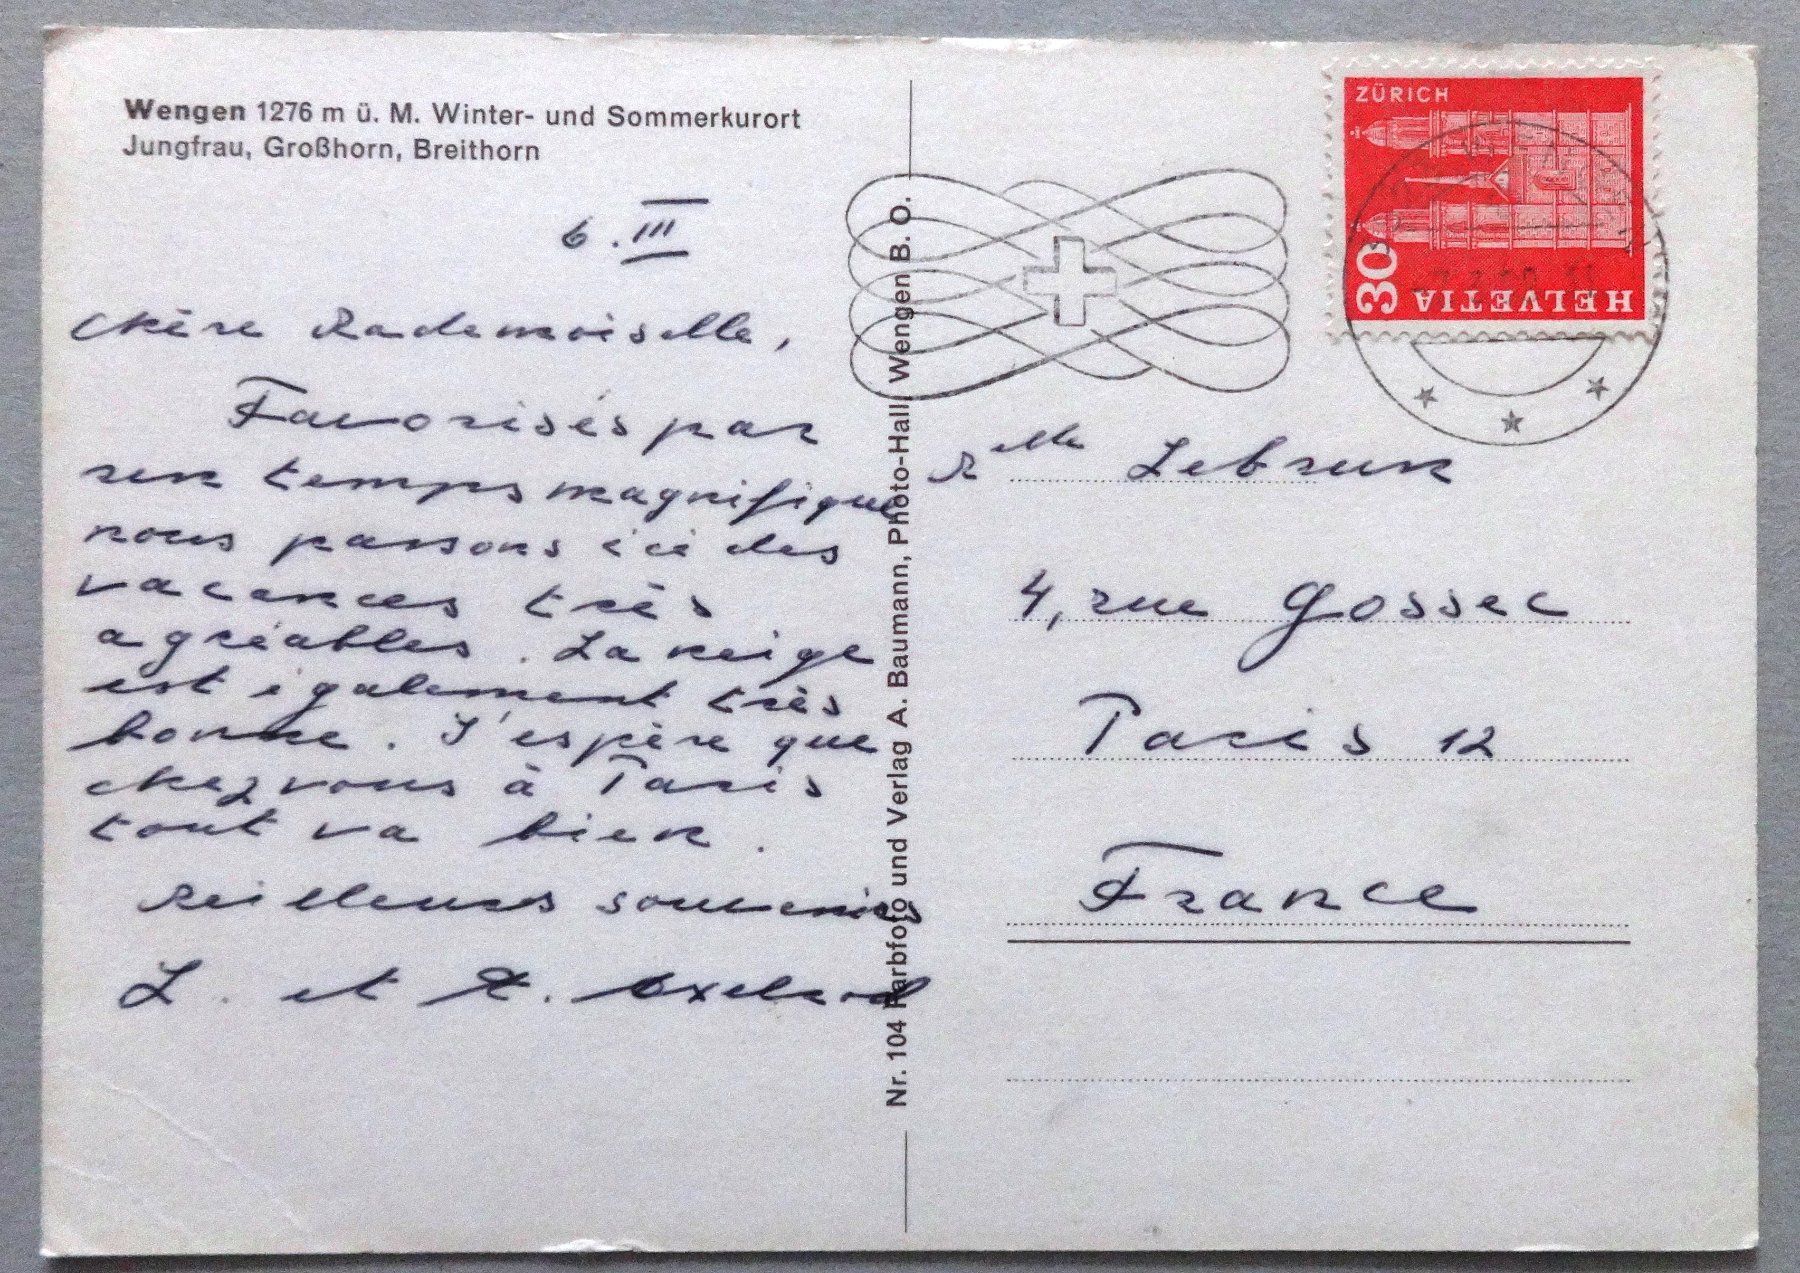 Wengen 1276 m ü. M. Winter- und Sommerkurort
Jungfrau, Großhorn, Breithorn
6.III
Chère Mademoiselle,
Favorisés par
un temps magnifique
nous passons ici des
vacances très
agréables. La neige
est également très
bonne. J'espère que
chez vous à Paris
tout va bien.
Meilleurs souvenirs
L. et A. Axelrad
Nr. 104 Farbfoto und Verlag A. Baumann, Photo-Hall, Wengen B. O.
ZÜRICH
30
HELVETIA
Melle Lebrun
4, rue Gossec
Paris 12
France